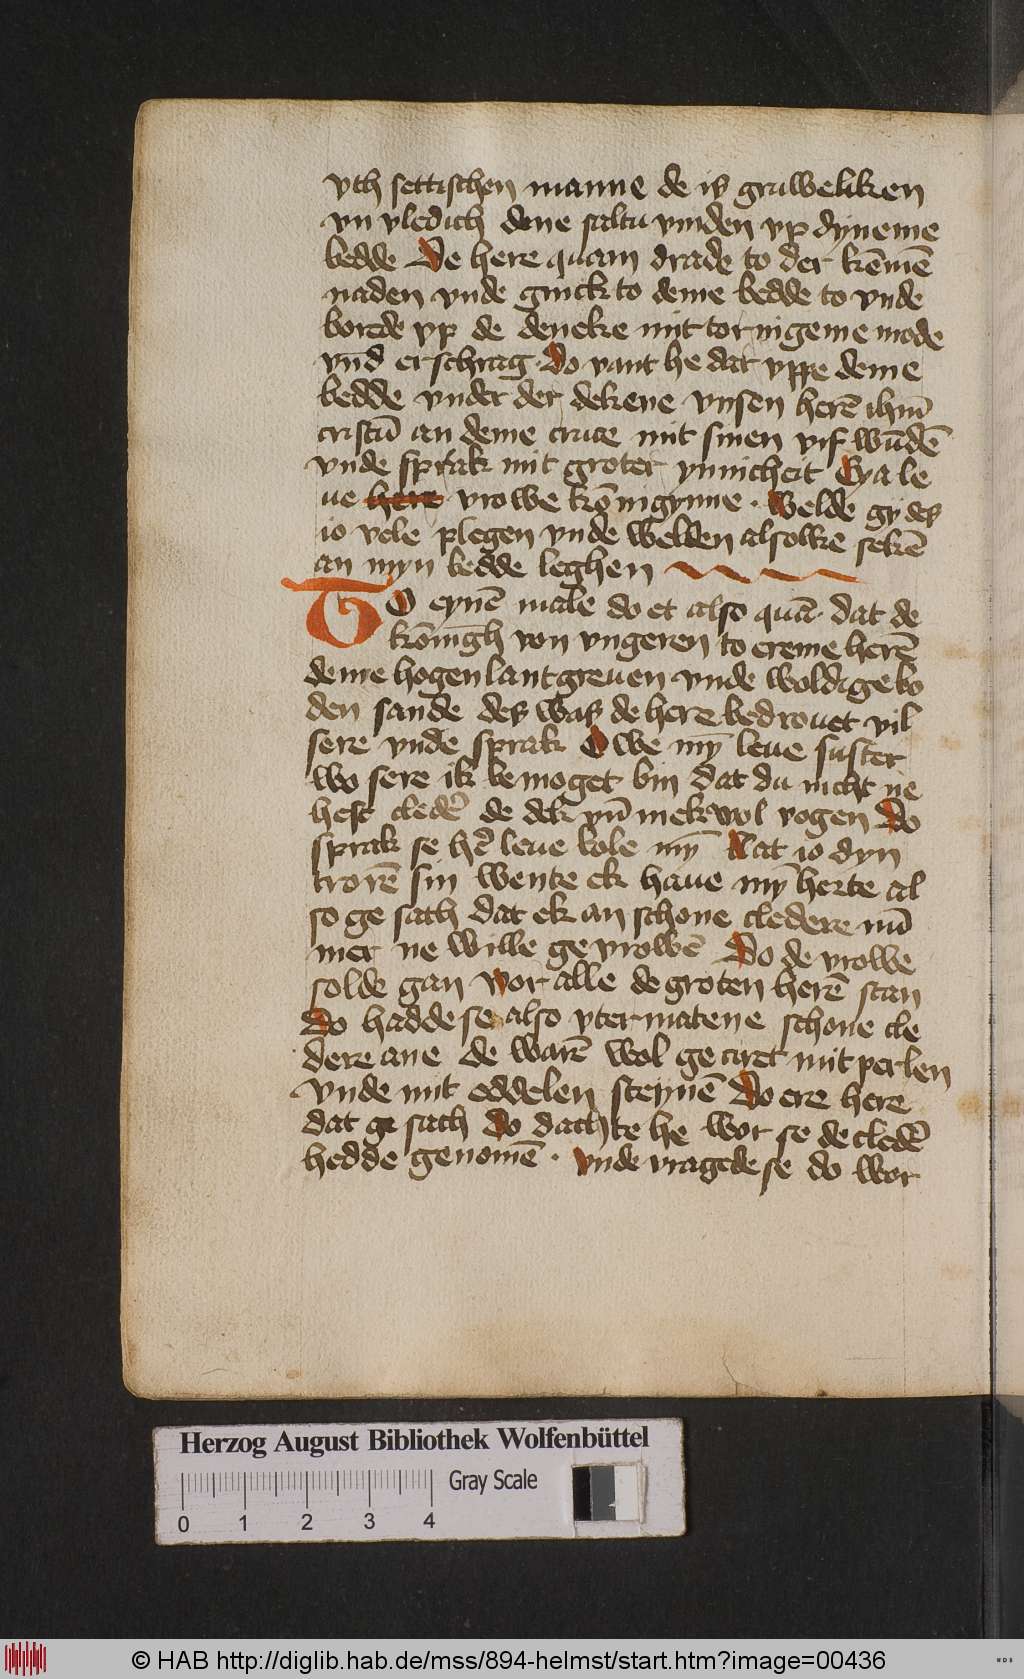 vth settischen manne de is gruweliken
vn vledich dene saltu vinden vp dyneme
bedde De here quam drade to der kēmē
naden vnde ginck to deme bedde to vnde
borede vp de deneke mit tornigeme mode
vn̄d erschrag · do vant he dat vppe deme
bedde vnder der dekene vnsen herē ihm̄
cristū an deme cruce mit sinen vif wūdē
vnde sprak mit groter ynnicheit Eya le
ue here vrowe kōnigynne · welde gy des
io vele plegen vnde welden alsolke sekē
an myn bedde leghen
TO eynē male do et also quā· dat de
kōnīgh von vngeren to ereme herē
deme hogen lantgreuen vnde woldige bo
den sande des was de here bedrouet vil
sere vnde sprak O we mȳ leue suster
wo sere ik bemoget bin dat du nicht ne
hest cledē de dek vn̄ mek wol vogen do
sprak se hē leue bole mȳ Lat io dyn
trorē sin wente ek haue mȳ herte al
so ge sath dat ek an schone cledere nū
mer ne wille ge vrowē Do de vrowe
solde gan vor alle de groten herē stan
do hadde se also vtermatene schone cle
dere ane de warē wol ge ciret mit perlen
vnde mit eddelen steynē Do ere here
dat ge sach do dachte he wor se de cledē
hedde genomē · vnde vragede se do wor
Herzog August Bibliothek Wolfenbüttel
Gray Scale
0 1 2 3 4
© HAB http://diglib.hab.de/mss/894-helmst/start.htm?image=00436